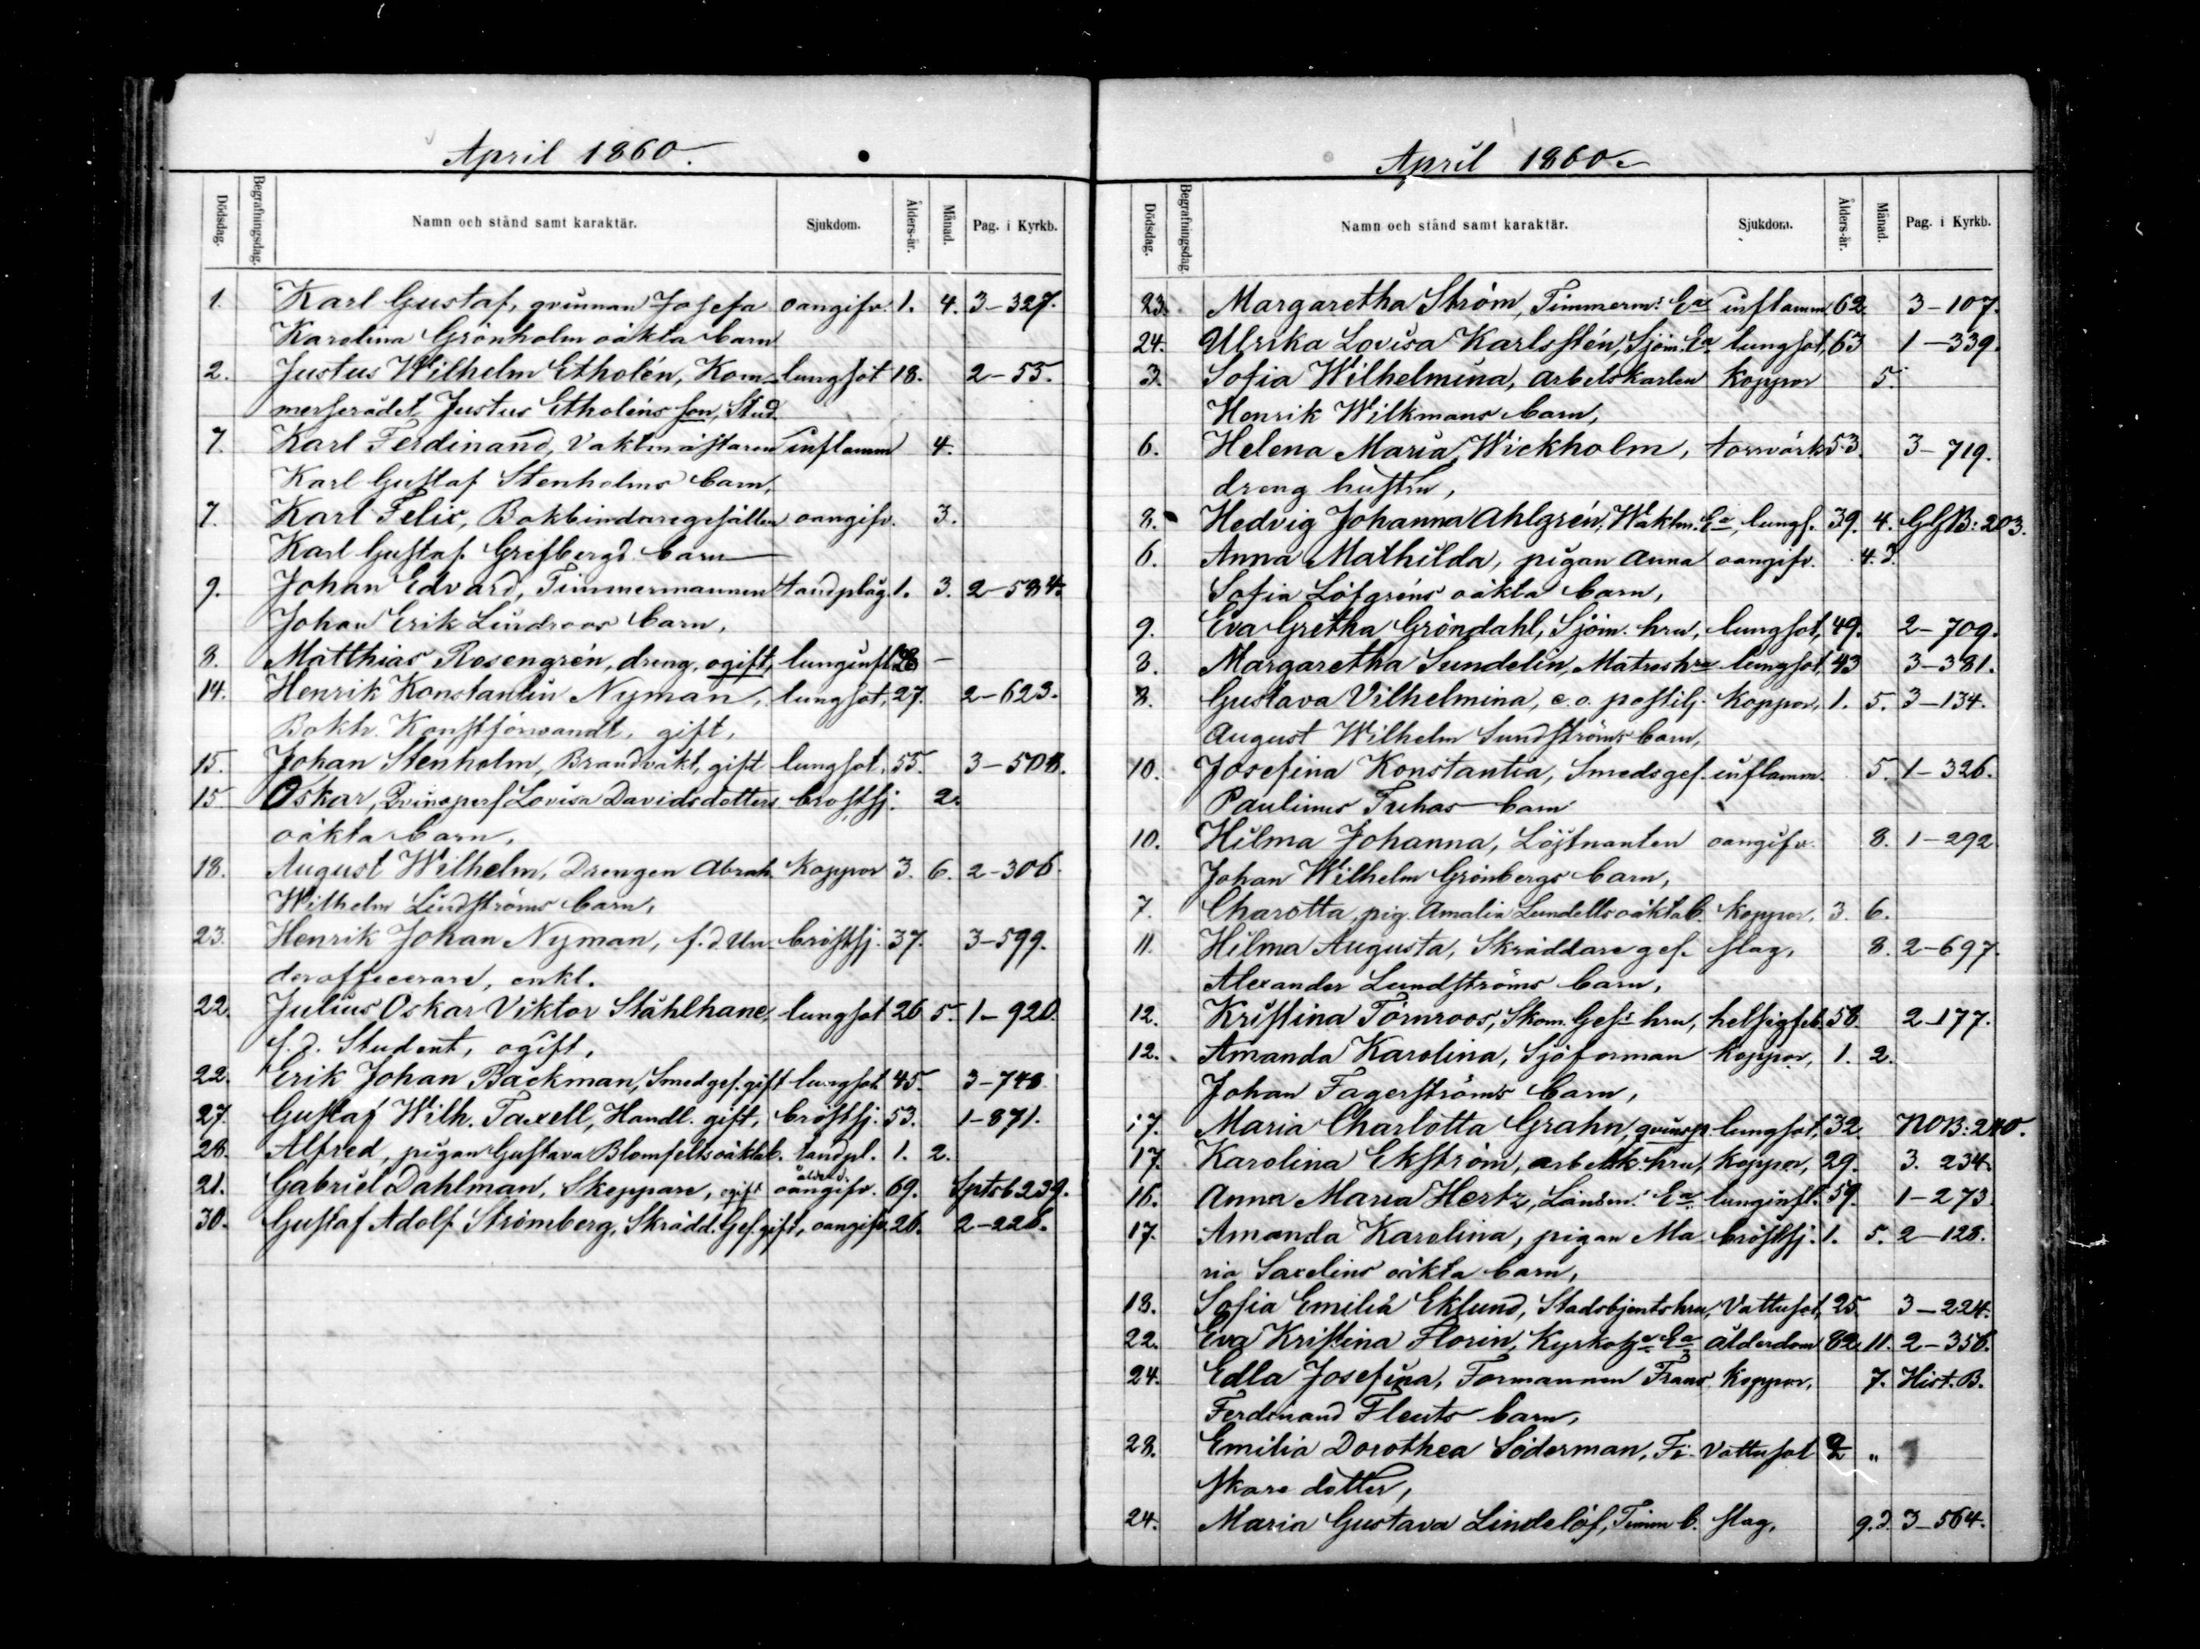 April 1860.
Dödsdag. Begrafningsdag. Namn och stånd samt karaktär. Sjukdom. Ålders-år. Månad. Pag. i Kyrkb.
1. Karl Gustaf, qvinnan Josefa oangifv. 1. 4. 3-327.
Karolina Grönholm oäkta barn
2. Justus Wilhelm Etholén, Kom- lungsot 18. 2-55.
merserådet Justus Etholéns son, Stud.
7. Karl Ferdinand, Vaktmästaren inflamm 4.
Karl Gustaf Stenholms barn,
7. Karl Felix, Bokbindaregesällen oangifv. 3.
Karl Gustaf Grefbergs barn
9. Johan Edvard, Timmermannen tandplåg. 1. 3. 2-584.
Johan Erik Lindroos barn,
8. Matthias Rosengrén, dreng, ogift, lunginfl. 28 -
14. Henrik Konstantin Nyman, lungsot, 27. 2-623.
Boktr. Konstförvandt, gift,
15. Johan Stenholm, Brandvakt, gift lungsot, 55. 3-508.
15 Oskar, Qvinspers Lovisa Davidsdotters bröstsj. 2.
oäkta barn,
18. August Wilhelm, Drengen Abrah. Koppor 3. 6. 2-306.
Wilhelm Lindströms barn,
23. Henrik Johan Nyman, f.d. Un- bröstsj. 37. 3-599.
derofficerare, enkl.
22. Julius Oskar Viktor Stählhane, lungsot 26 5. 1-920.
f.d. Student, ogift,
22. Erik Johan Backman, Smedgef. gift lungsot 45 3-748
27. Gustaf Wilh. Taxell, Handl. gift, bröstsj. 53. 1-871.
28. Alfred, pigan Gustava Blomfelts oäkta b. tandpl. 1. 2.
21. Gabriel Dahlman, Skeppare, ogift oangifv. 69. 239.
30. Gustaf Adolf Strömberg, Skrädd. Gef. gift, oangifv. 26. 2-226.
April 1860.
Dödsdag. Begrafningsdag. Namn och stånd samt karaktär. Sjukdom. Ålders-år. Månad. Pag. i Kyrkb.
23. Margaretha Ström, Timmerm:s Ea inflamm 62. 3-107.
24. Ulrika Lovisa Karlsstén, Sjöm. Ea lungsot, 63 1-339.
3. Sofia Wilhelmina, arbetskarlen Koppor 5.
Henrik Wilkmans barn,
6. Helena Maria Wickholm, torrvärk 53. 3-719.
dreng hustru,
8. Hedvig Johanna Ahlgrén, Waktm. Ea, lungs. 39. 4. 203.
6. Anna Mathilda, pigan Anna oangifv. 4. d.
Sofia Löfgréns oäkta barn,
9. Eva Gretha Gröndahl, Sjöm. hru, lungsot, 49. 2-709.
3. Margaretha Sundelin, Matros hru lungsot, 43 3-381.
8. Gustava Vilhelmina, e.o. postilj. Koppor, 1. 5. 3-134.
August Wilhelm Sundströms barn,
10. Josefina Konstantia, Smedsgef. inflamm. 5. 1-326.
Paulinus Tuhas barn
10. Hilma Johanna, Löjtnanten oangifv. 8. 1-292
Johan Wilhelm Grönbergs barn,
7. Charotta, pig. Amalia Lundells oäkta b. Koppor, 3. 6.
11. Hilma Augusta, Skräddare gef. slag, 8. 2-697.
Alexander Lundströms barn,
12. Kristina Törnroos, Skom. Gef:s hru, hetsigfeb. 58. 2-177.
12. Amanda Karolina, Sjöforman koppor, 1. 2.
Johan Fagerströms barn,
17. Maria Charlotta Grahn, qvinsp. lungsot, 32 NOB: 240.
17. Karolina Ekström, arbetsk. hru, koppor, 29. 3. 234.
16. Anna Maria Hertz, Länsm:s Ea. lunginfl. 59. 1-273.
17. Amanda Karolina, pigan Ma- bröstsj. 1. 5. 2-128.
ria Saxelins oäkta barn,
18. Sofia Emilia Eklund, Stadsbjents hru, Vattusot, 25. 3-224.
22. Eva Kristina Florin, Ea ålderdom 82 11. 2-356.
24. Edla Josefina, Formannen Frans Koppor, 7. Hist. B.
Ferdinand Flents barn,
28. Emilia Dorothea Söderman, Fi- Vattusot 2 "
skare dotter,
24. Maria Gustava Lindelöf, Timm b. slag, 9. d. 3-564.